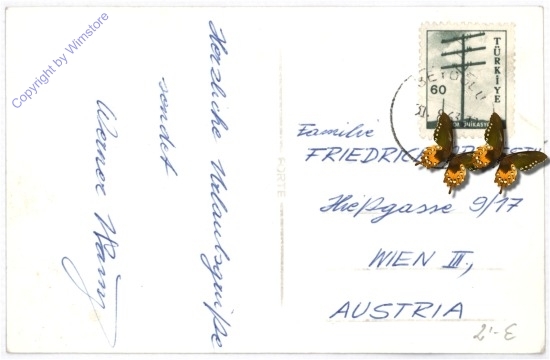 Copyright by Wimstore
Herzliche Urlaubsgrüße
sendet
Werner
TÜRKİYE
60
BEYOĞLU
Familie
FRIEDRICH
Hießgasse 9/17
WIEN III,
AUSTRIA